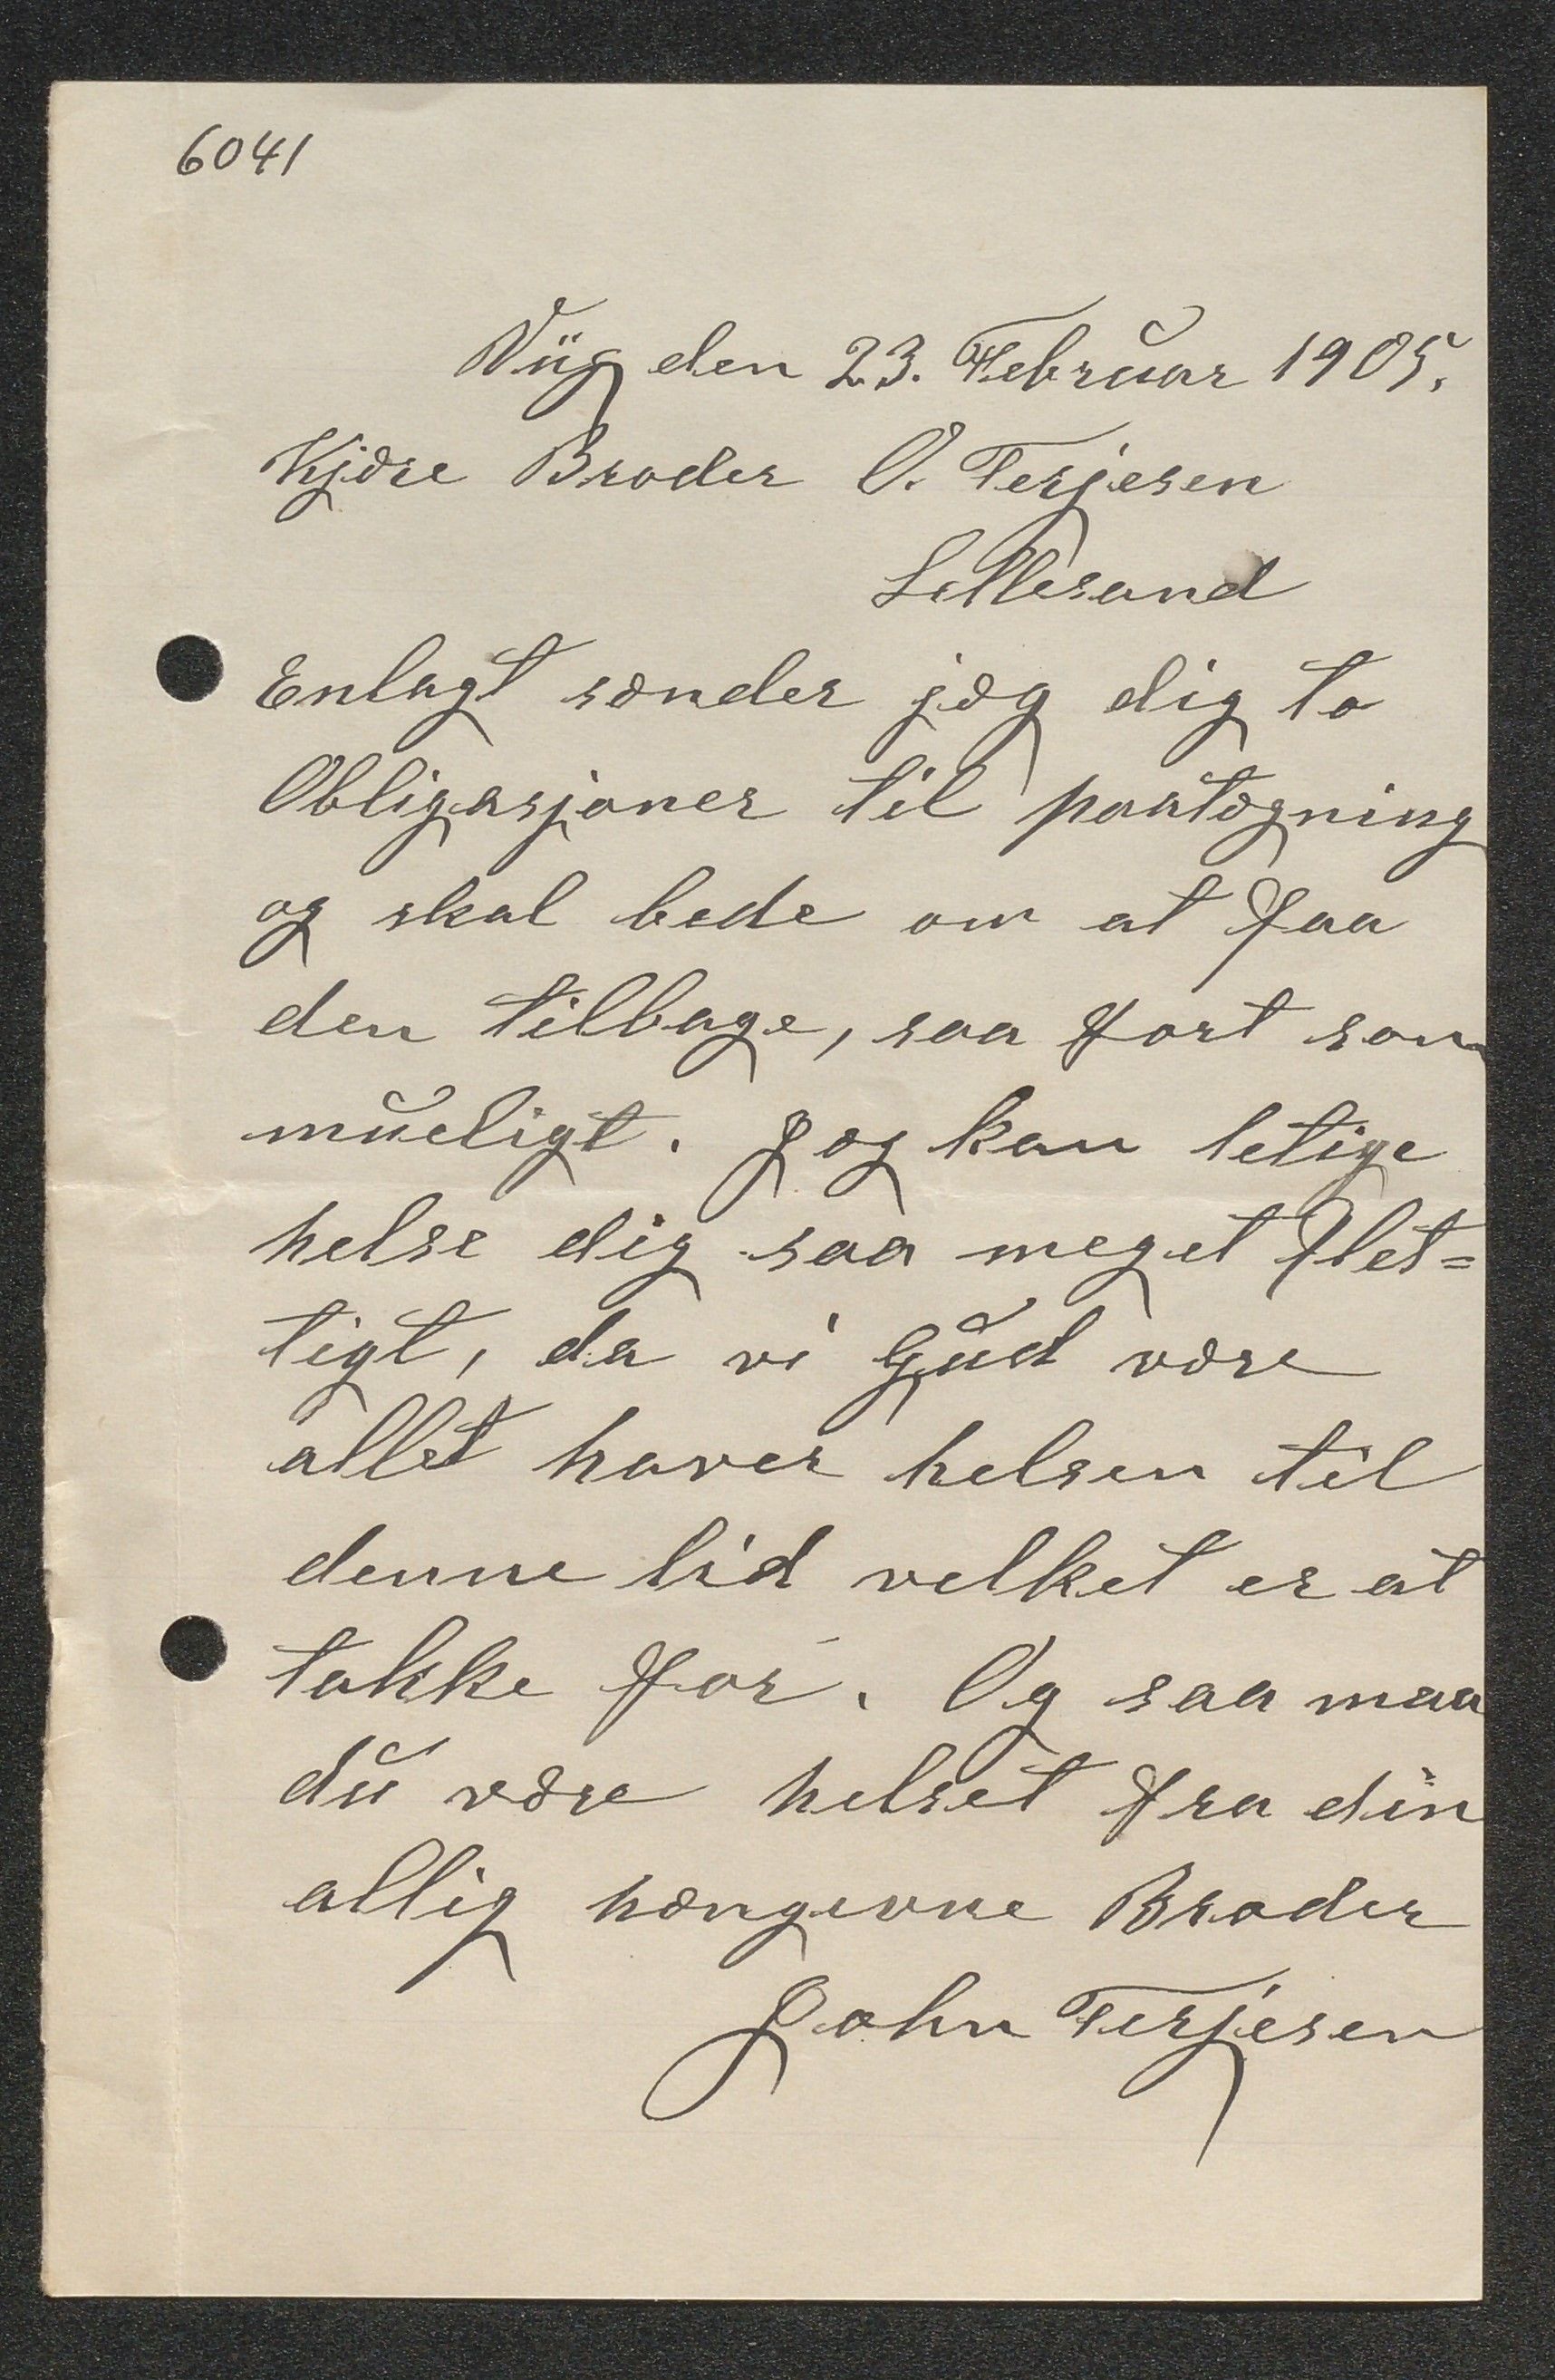 6041
Viig den 23. Februar 1905.
Kjære Broder O. Terjesen
Lillesand
Enlagt sænder jæg dig to
Obligasjoner til paatægning
og skal bede om at faa
den tilbage, saa fort som
mueligt. Jæg kan letige
helse dig saa meget flet=
tigt, da vi Gud være
allet haver helsen til
denne tid velket er at
takke for. Og saa maa
du være helset fra din
allig hængivne Broder
John Terjesen